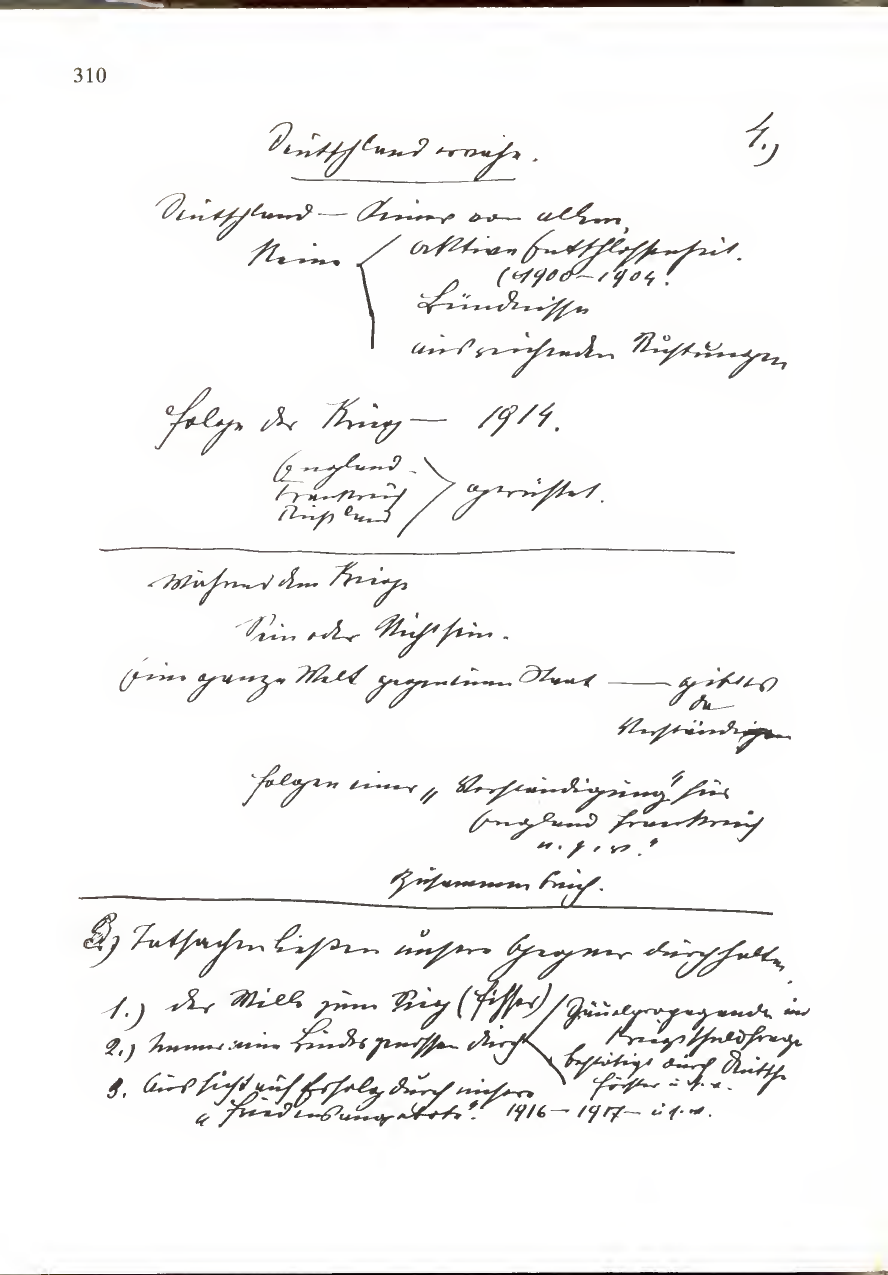 310
4.)
Deutschland erwache.
Deutschland — Keines von allem,
Keine
aktive Entschlossenheit.
(1900–1904.
Bündnisse
ausreichenden Rüstungen
Folge der Krieg — 1914.
England
Frankreich
Rußland
gerüstet.
Während dem Kriege
Sein oder Nichtsein.
Eine ganze Welt gegen einen Staat — gibt es
da
Verständigen
Folgen einer „Verständigung" für
England Frankreich
u.s.w."
Zusammenbruch.
Tatsachen ließen unsere Gegner durchhalten
1.) der Wille zum Sieg (Führer)
2.) Immer neue Bundesgenossen durch
Gräuelpropaganda und
Kriegsschuldfrage
bestätigt durch Deutsche
Förster u.s.w.
3. Aussicht auf Erfolg durch unsere
„Friedensangebote". 1916 – 1917 – u.s.w.